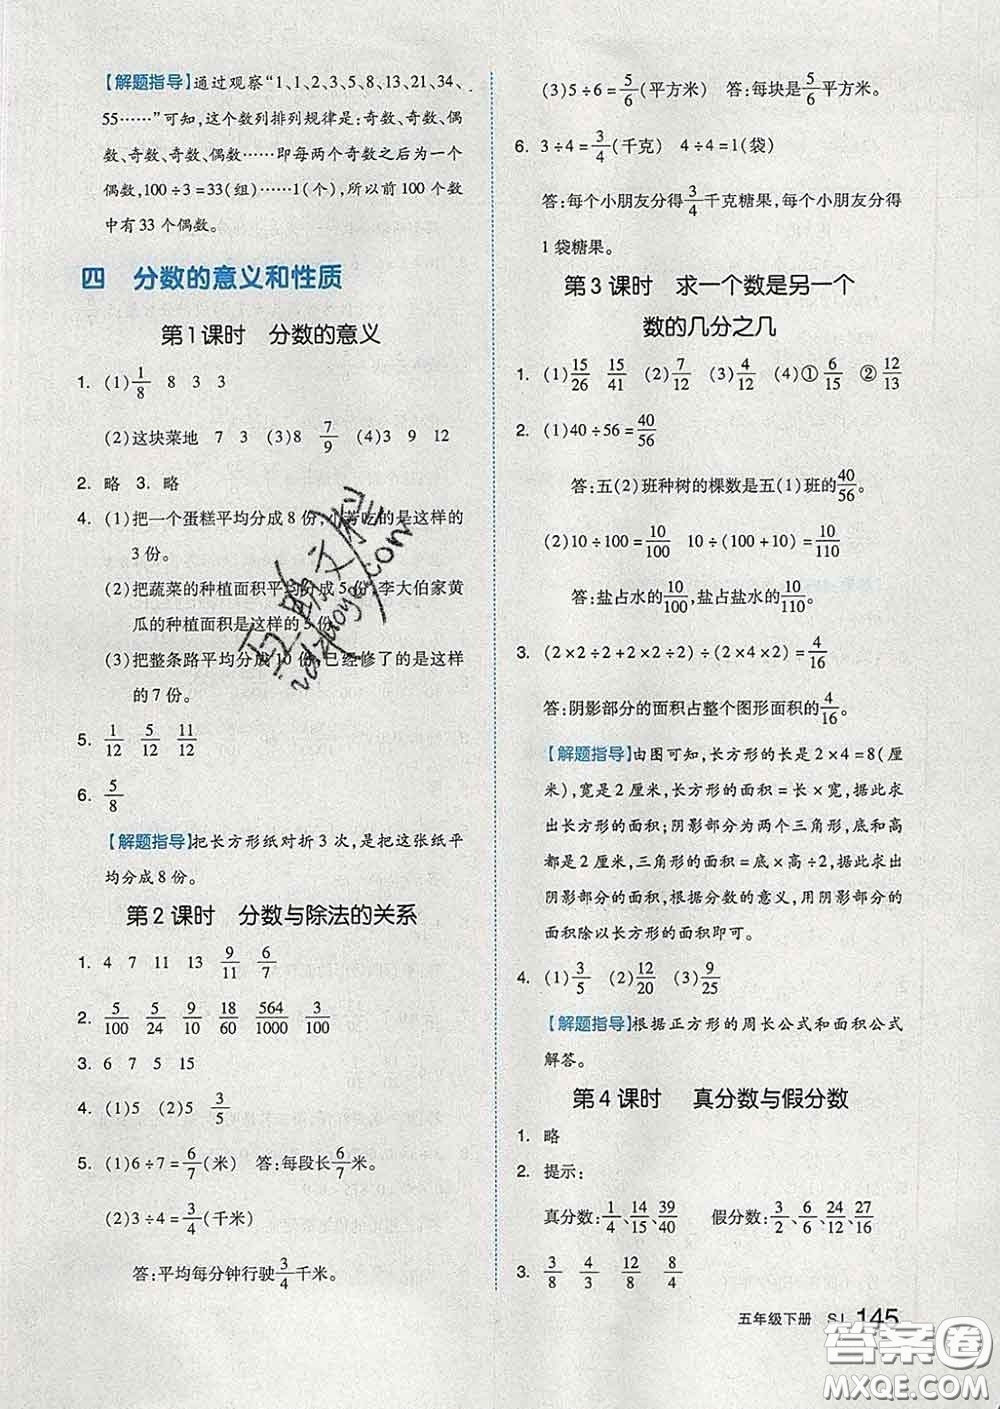 【解题指导】通过观察“1、1、2、3、5、8、13、21、34、
55……”可知，这个数列排列规律是：奇数、奇数、偶
数、奇数、奇数、偶数……即每两个奇数之后为一个
偶数，100÷3=33(组)……1(个)，所以前100个数
中有33个偶数。
四 分数的意义和性质
第1课时 分数的意义
1. (1)1/8 8 3 3
(2)这块菜地 7 3 (3)8 7/9 (4)3 9 12
2. 略 3. 略
4. (1)把一个蛋糕平均分成8份，芳吃的是这样的
3份。
(2)把蔬菜的种植面积平均分成5份，李大伯家黄
瓜的种植面积是这样的份。
(3)把整条路平均分成10份，已经修了的是这样
的7份。
5. 1/12 5/12 11/12
6. 5/8
【解题指导】把长方形纸对折3次，是把这张纸平
均分成8份。
第2课时 分数与除法的关系
1. 4 7 11 13 9/11 6/7
2. 5/100 5/24 9/10 18/60 564/1000 3/100
3. 6 7 5 15
4. (1)5 (2)5 3/5
5. (1)6÷7=6/7(米) 答：每段长6/7米。
(2)3÷4=3/4(千米)
答：平均每分钟行驶3/4千米。
(3)5÷6=5/6(平方米) 答：每块是5/6平方米。
6. 3÷4=3/4(千克) 4÷4=1(袋)
答：每个小朋友分得3/4千克糖果，每个小朋友分得
1袋糖果。
第3课时 求一个数是另一个
数的几分之几
1. (1)15/26 15/41 (2)7/12 (3)4/12 (4)①6/15 ②12/13
2. (1)40÷56=40/56
答：五(2)班种树的棵数是五(1)班的40/56。
(2)10÷100=10/100 10÷(100+10)=10/110
答：盐占水的10/100，盐占盐水的10/110。
3. (2×2÷2+2×2÷2)÷(2×4×2)=4/16
答：阴影部分的面积占整个图形面积的4/16。
【解题指导】由图可知，长方形的长是2×4=8(厘
米)，宽是2厘米，长方形的面积=长×宽，据此求
出长方形的面积；阴影部分为两个三角形，底和高
都是2厘米，三角形的面积=底×高÷2，据此求出
阴影部分的面积，根据分数的意义，用阴影部分的
面积除以长方形的面积即可。
4. (1)3/5 (2)12/20 (3)9/25
【解题指导】根据正方形的周长公式和面积公式
解答。
第4课时 真分数与假分数
1. 略
2. 提示：
真分数：1/4、14/15、39/40 假分数：3/2、6/6、24/12、27/16
3. 3/8 4/3 12/8 8/4
五年级下册 SJ 145
答案圈
MXQE.COM